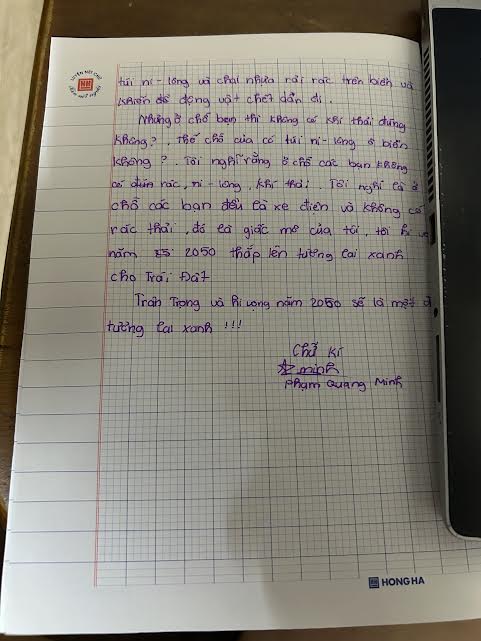 LUYỆN NÉT CHỮ
RÈN NẾT NGƯỜI
túi ni-lông và chai nhựa rải rác trên biển và
khiến đồ động vật chết dần đi.
Nhưng ở chỗ bạn thì không có khí thải đúng
không?. Thế chỗ của có túi ni-lông ở biển
không?. Tôi nghĩ rằng ở chỗ các bạn không
có rác, ni-lông, khí thải. Tôi nghĩ là ở
chỗ các bạn đều là xe điện và không có
rác thải, đó là giấc mơ của tôi, tôi hi vọ
năm 2050 thắp lên tương lai xanh
cho Trái Đất
Trân Trọng và hi vọng năm 2050 sẽ là một
tương lai xanh !!!
Chữ kí
minh
Phạm Quang Minh
HONG HA